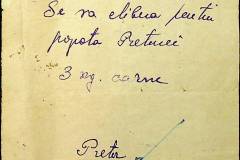 Se va elibera pentru
popota Preturei
3 kg. carne
Pretor